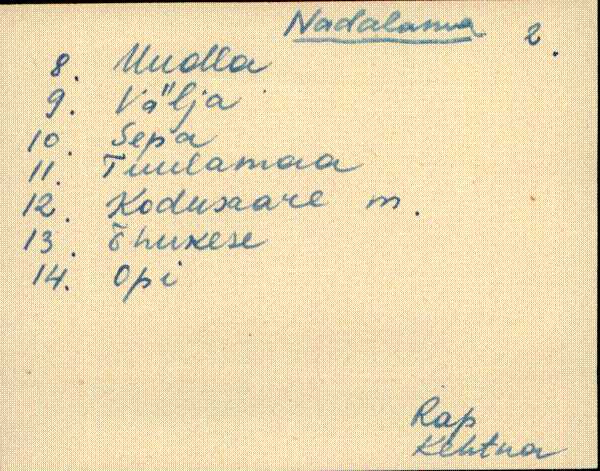 Nadalama 2.
8. Uudla
9. Välja
10. Sepa
11. Tuulamaa
12. Kodusaare m.
13. Õhukese
14. Opi
Rap
Kehtna